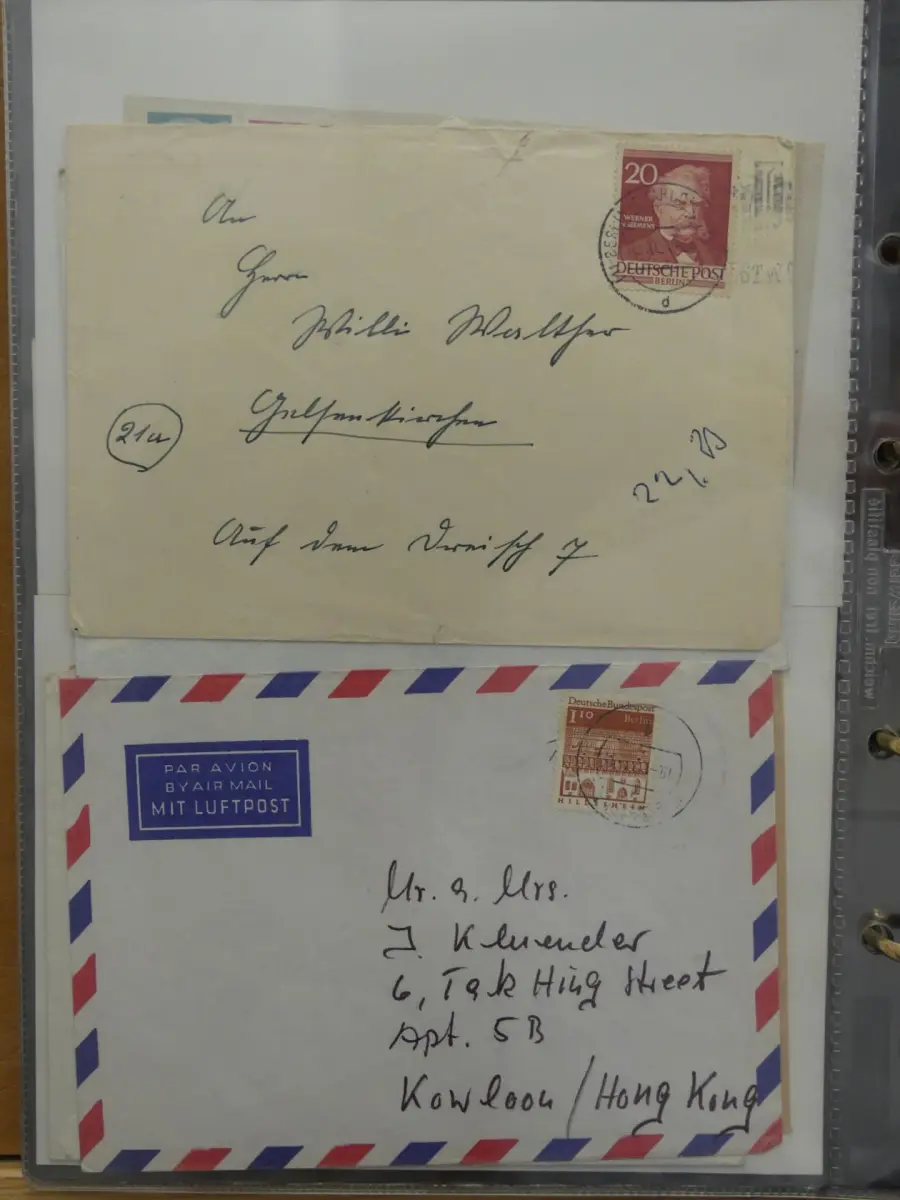 An
Herrn
Willi Walther
21a
Gelsenkirchen
Auf dem Dreisch 7
20
WERNER
v. SIEMENS
DEUTSCHE POST
BERLIN
d
PAR AVION
BY AIR MAIL
MIT LUFTPOST
Deutsche Bundespost
110 Berlin
HILDESHEIM
Mr. a. Mrs.
J. Kluender
6, Tak Hing Street
Apt. 5B
Kowloon / Hong Kong